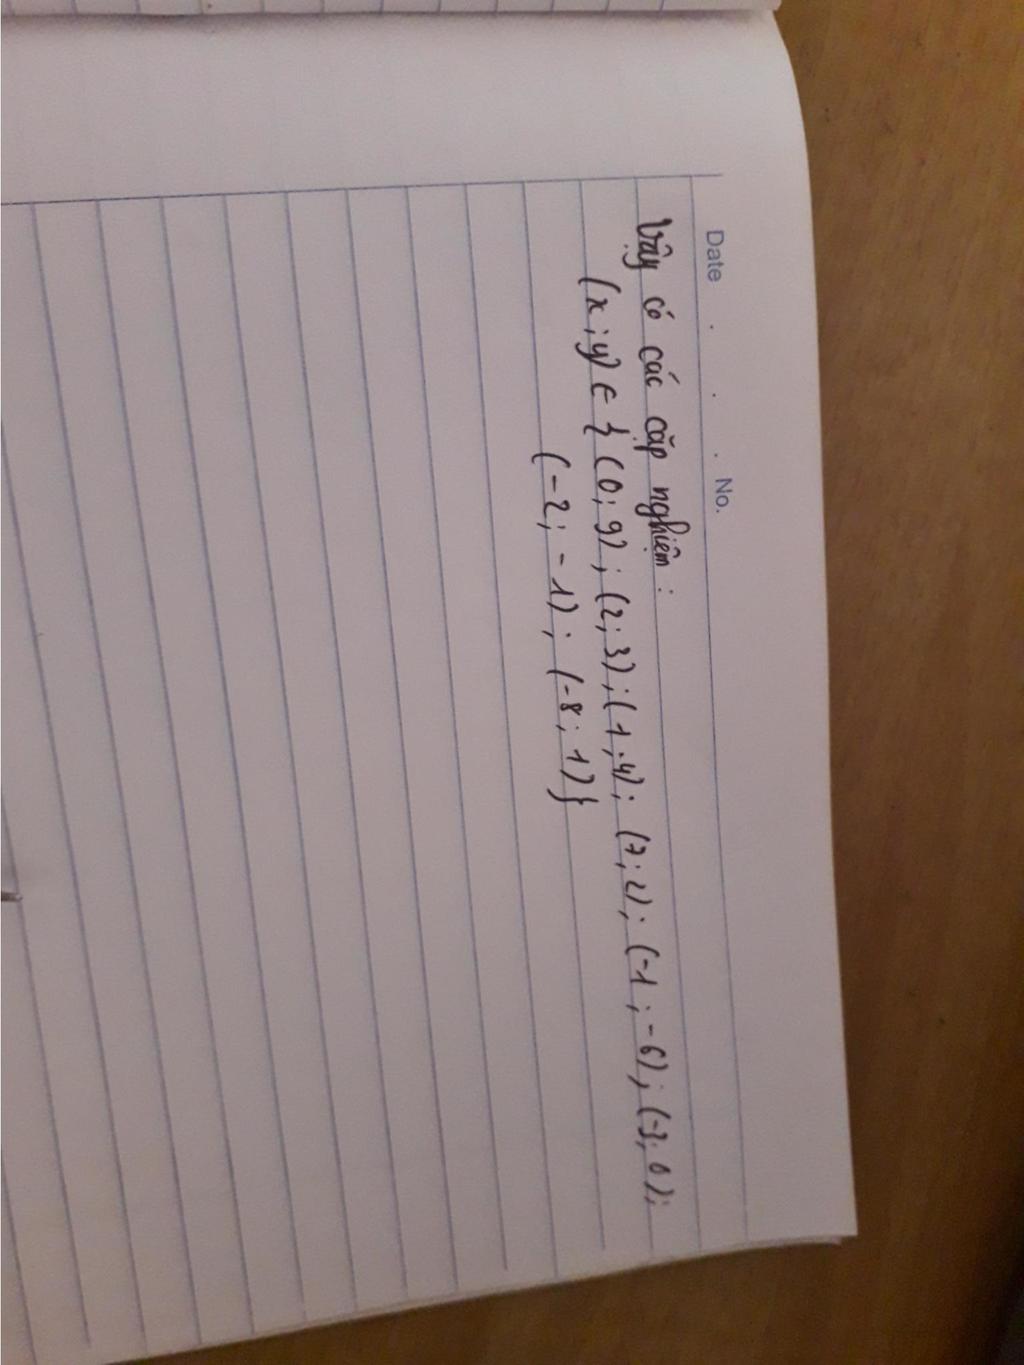 Date . . . No.
Vậy có các cặp nghiệm :
(x ; y) ∈ } (0 ; 9) ; (2 ; 3) ; (1 ; 4) ; (7 ; 2) ; (-1 ; -6) ; (-3 ; 0) ;
(-2 ; -1) ; (-8 ; 1) }